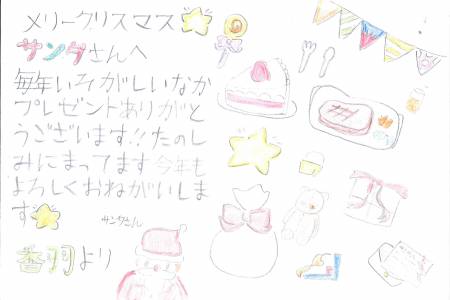 メリークリスマス
サンタさんへ
毎年いそがしいなか
プレゼントありがと
うございます!!たのし
みにまってます今年も
よろしくおねがいしま
す
サンタさん
より